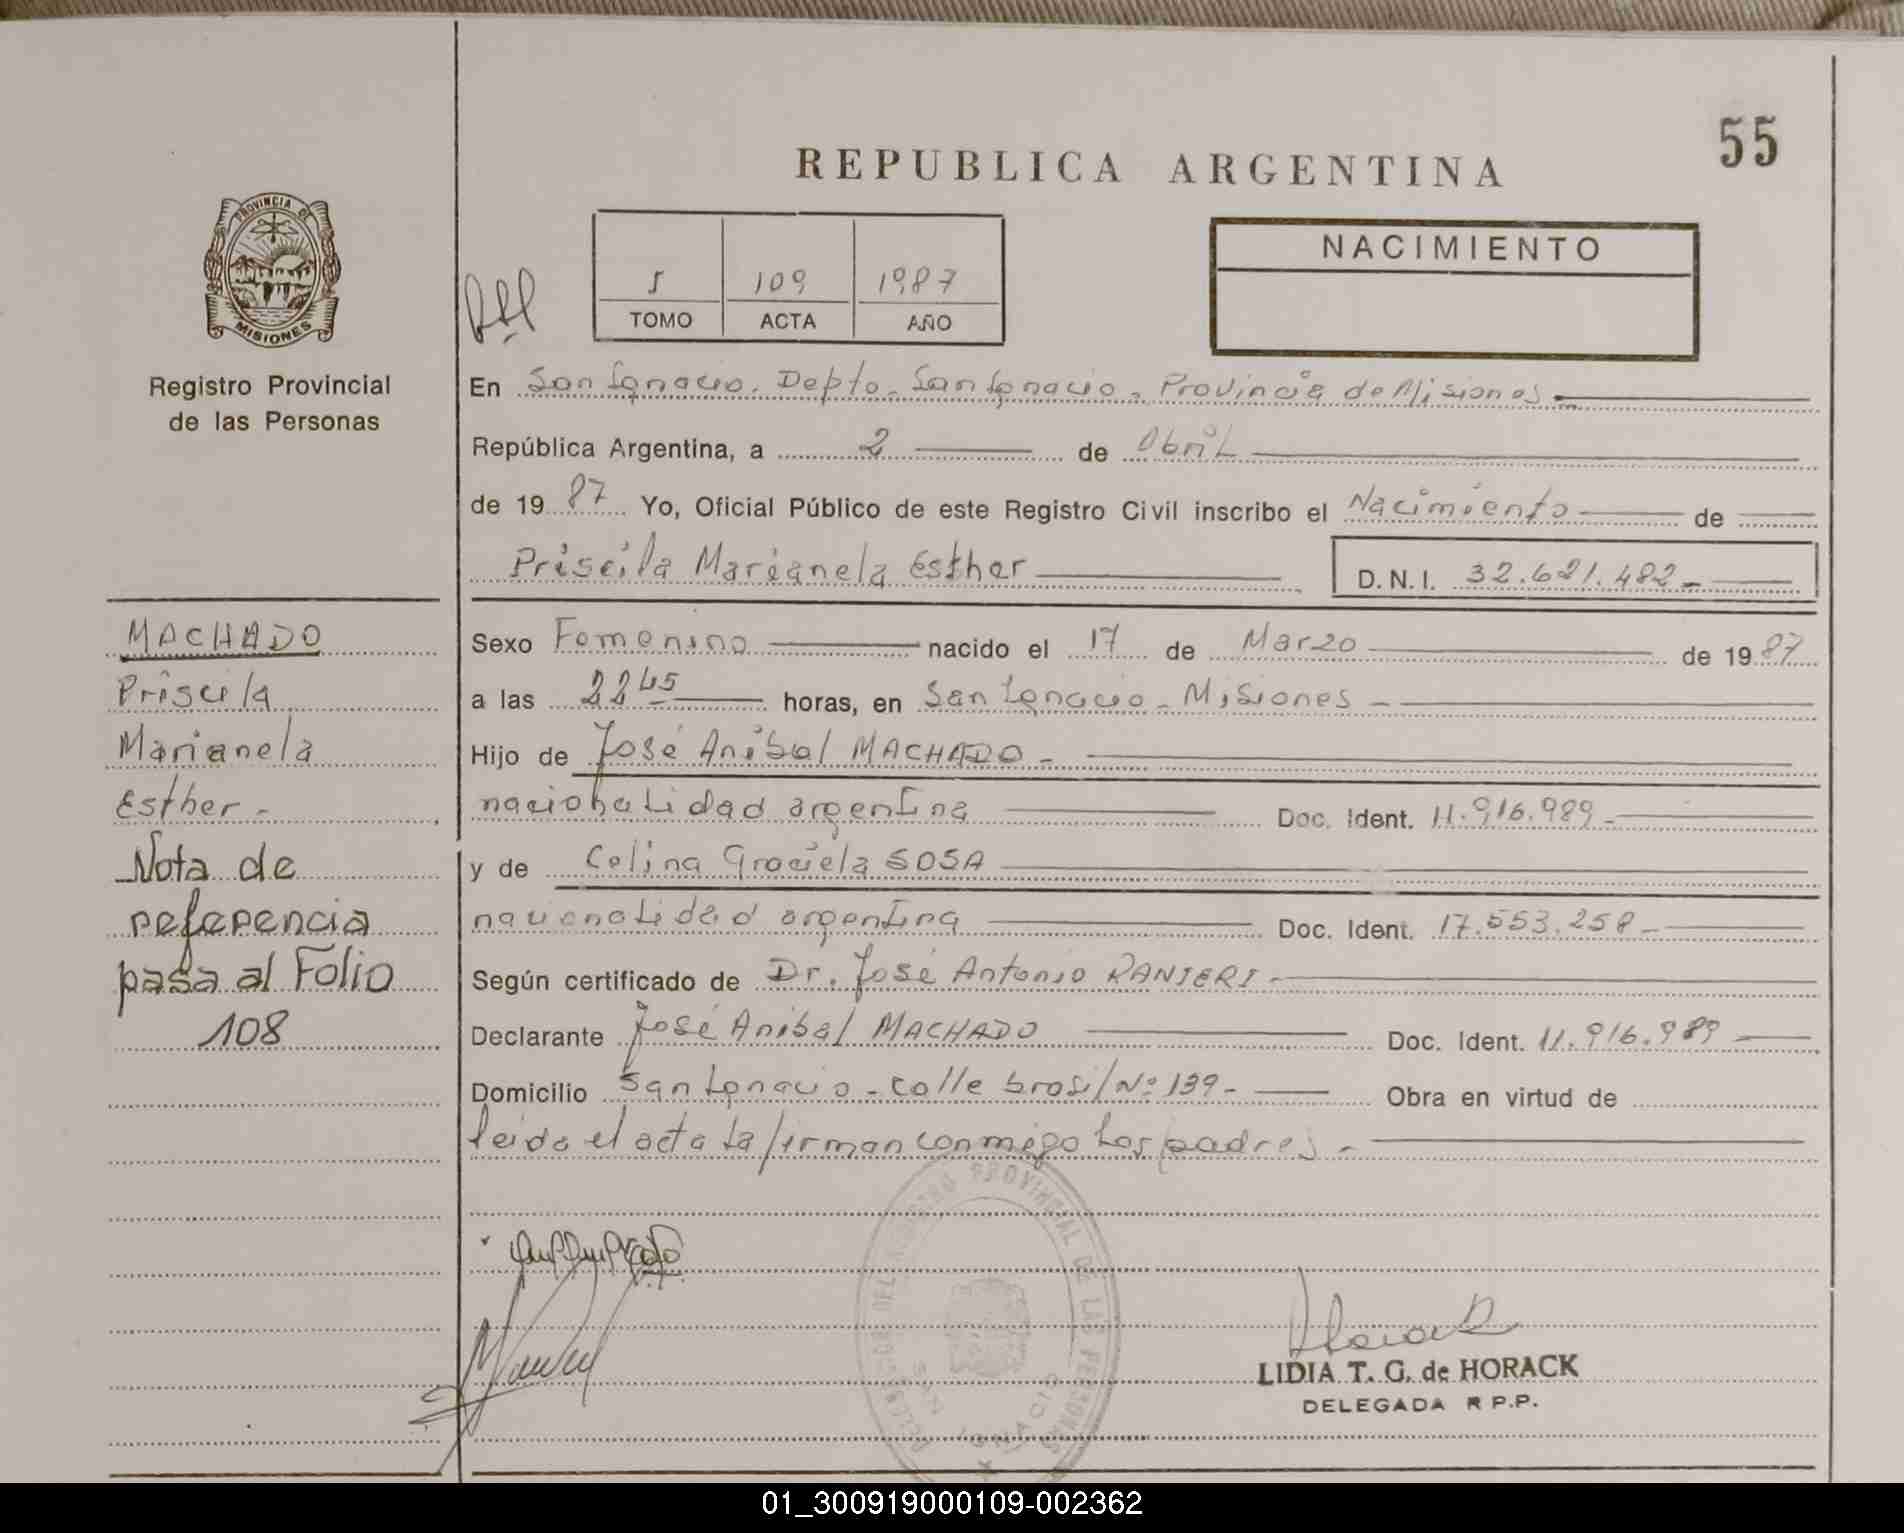 55
REPUBLICA ARGENTINA
PROVINCIA DE
MISIONES
Registro Provincial
de las Personas
5 109 1987
TOMO ACTA AÑO
NACIMIENTO
En San Ignacio. Depto. San Ignacio. Provincia de Misiones
República Argentina, a 2 de Abril
de 1987 Yo, Oficial Público de este Registro Civil inscribo el Nacimiento de
Priscila Marianela Esther D.N.I. 32.621.482
MACHADO
Priscila
Marianela
Esther -
Nota de
referencia
pasa al Folio
108
Sexo Femenino nacido el 17 de Marzo de 1987
a las 22 45 horas, en San Ignacio - Misiones -
Hijo de José Anibal MACHADO -
nacionalidad argentina Doc. Ident. 11.916.989 -
y de Celina Graciela SOSA
nacionalidad argentina Doc. Ident. 17.553.258 -
Según certificado de Dr. José Antonio RANIERI -
Declarante José Anibal MACHADO Doc. Ident. 11.916.989
Domicilio San Ignacio - calle brasil Nº 139 - Obra en virtud de
leida el acta la firman conmigo los padres -
DELA REGISTRO PROVINCIAL DE LAS PERSONAS
SAN IGNACIO
Horack
LIDIA T. G. de HORACK
DELEGADA R P.P.
01_300919000109-002362